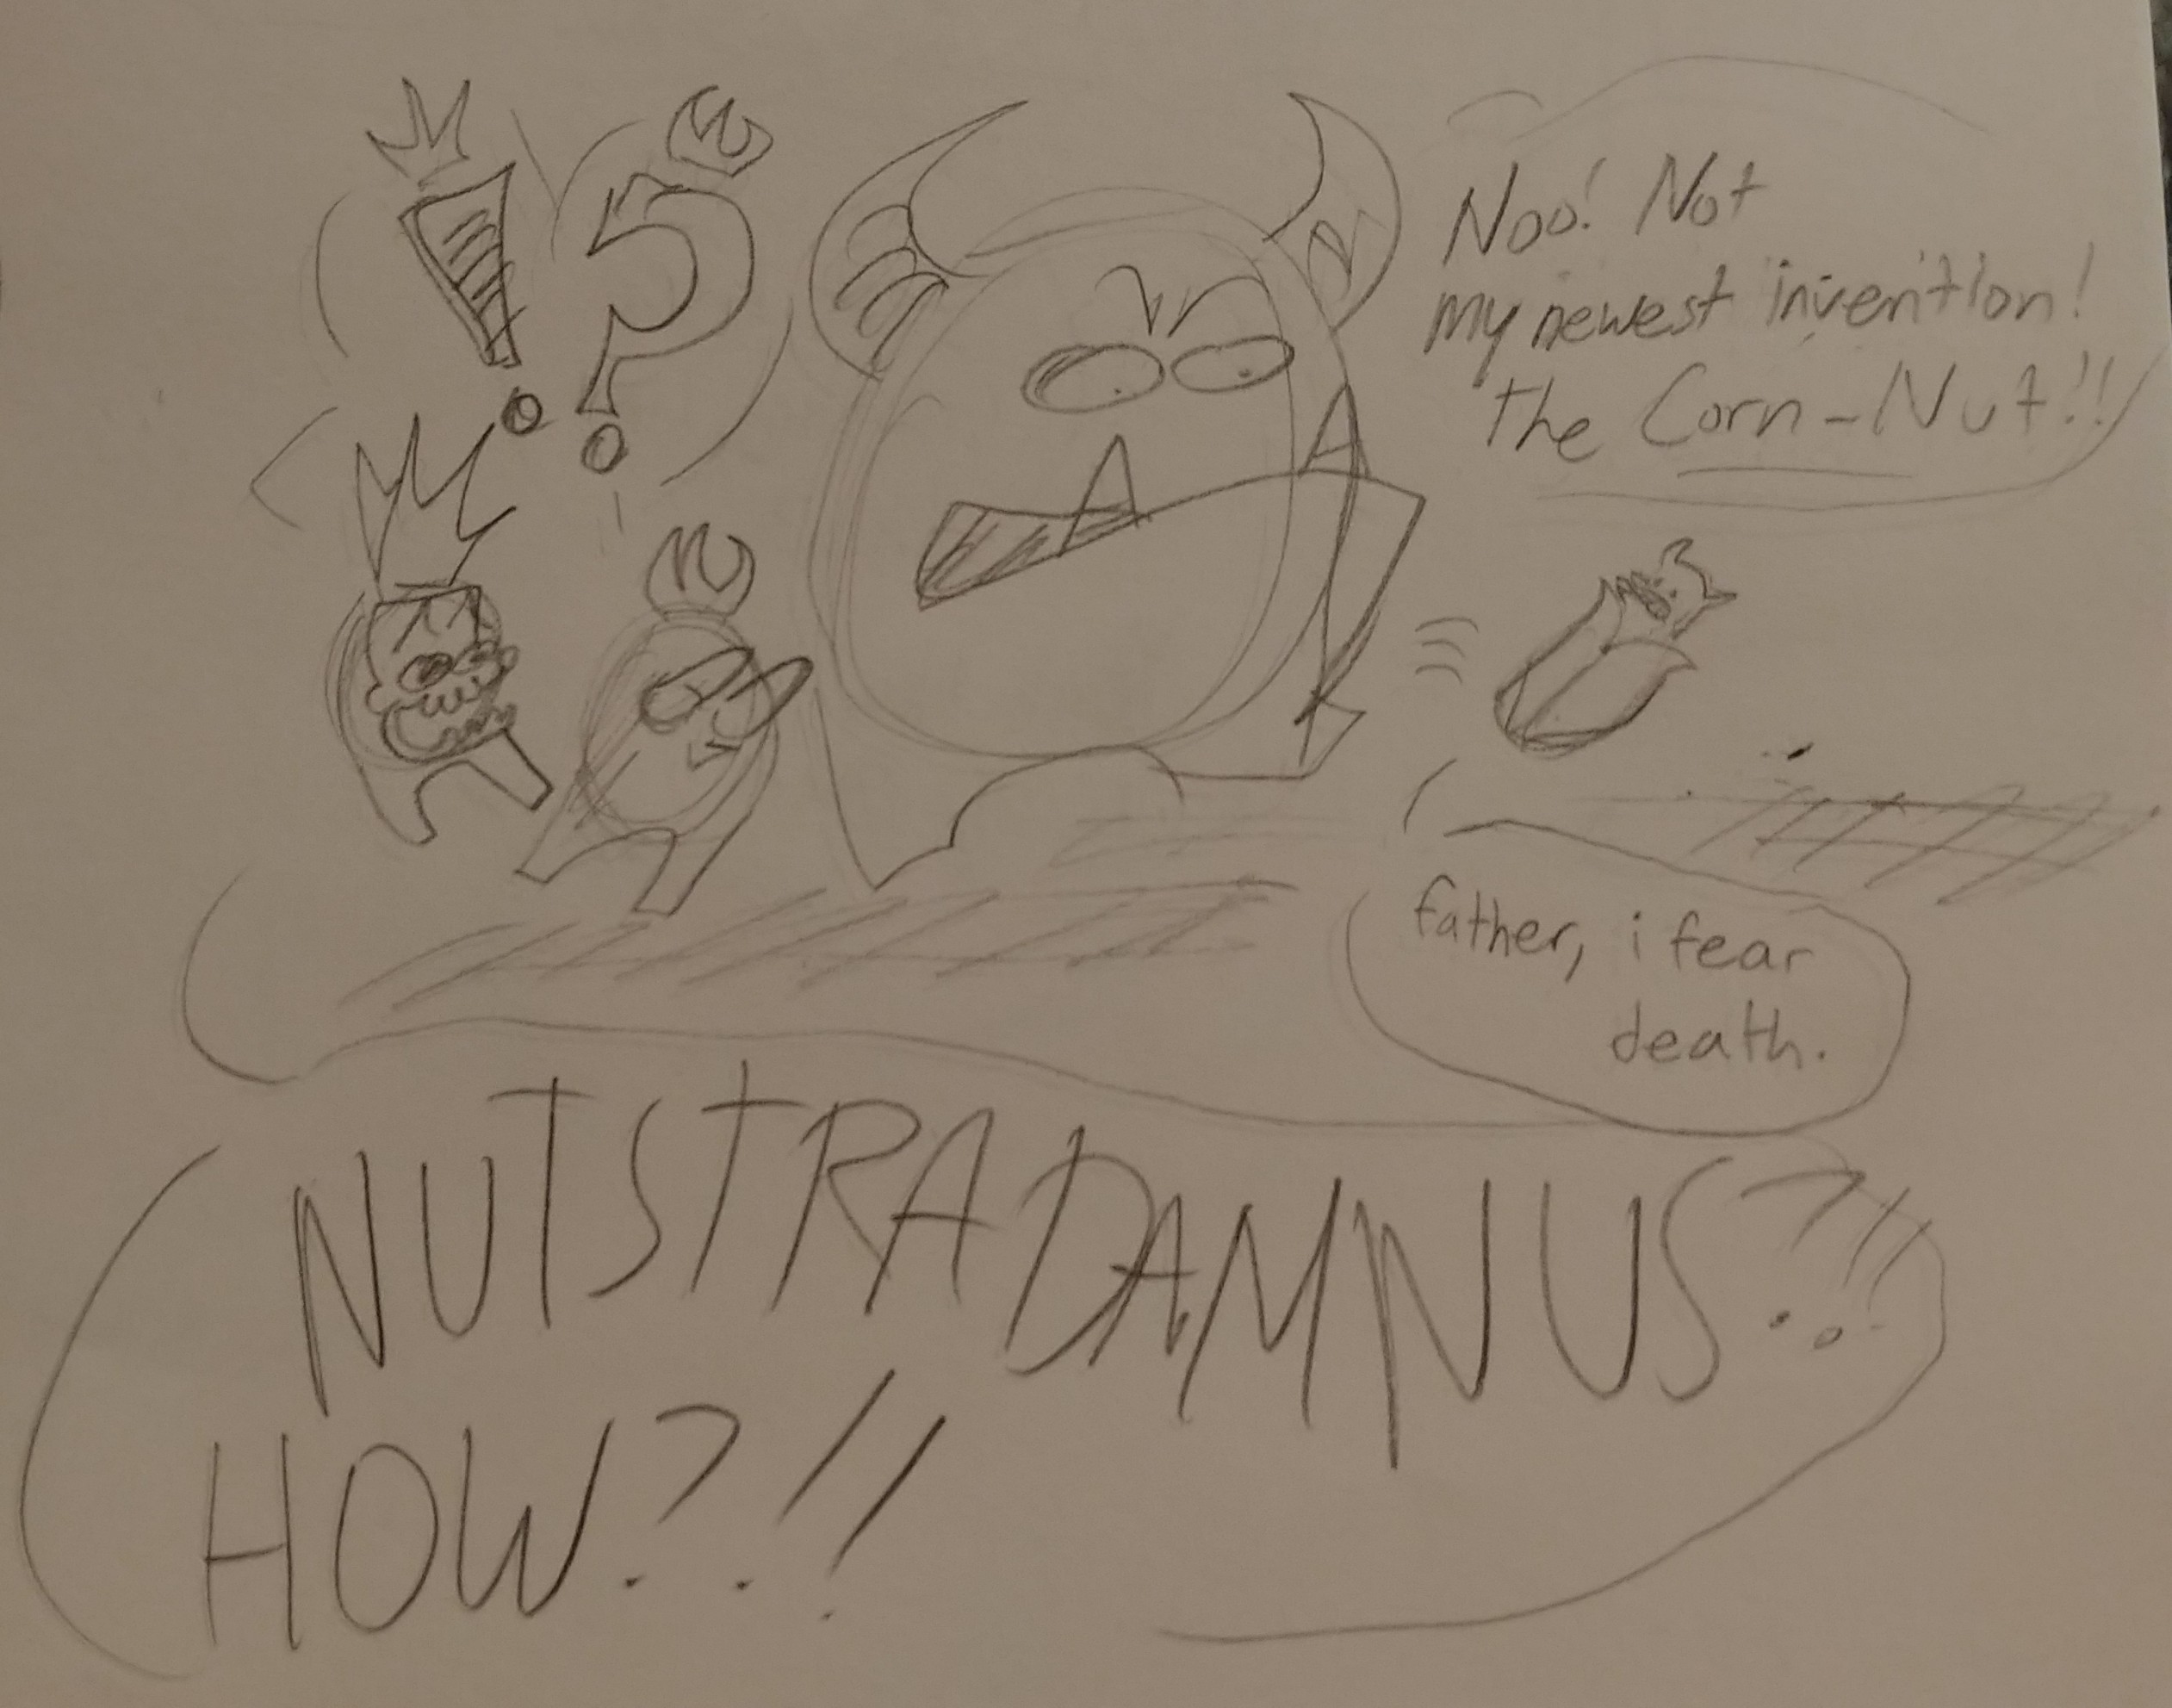 ! ?
Noo! Not
my newest invention!
the Corn-Nut!!
father, i fear
death.
NUTSTRADAMNUS?!!
HOW?!!